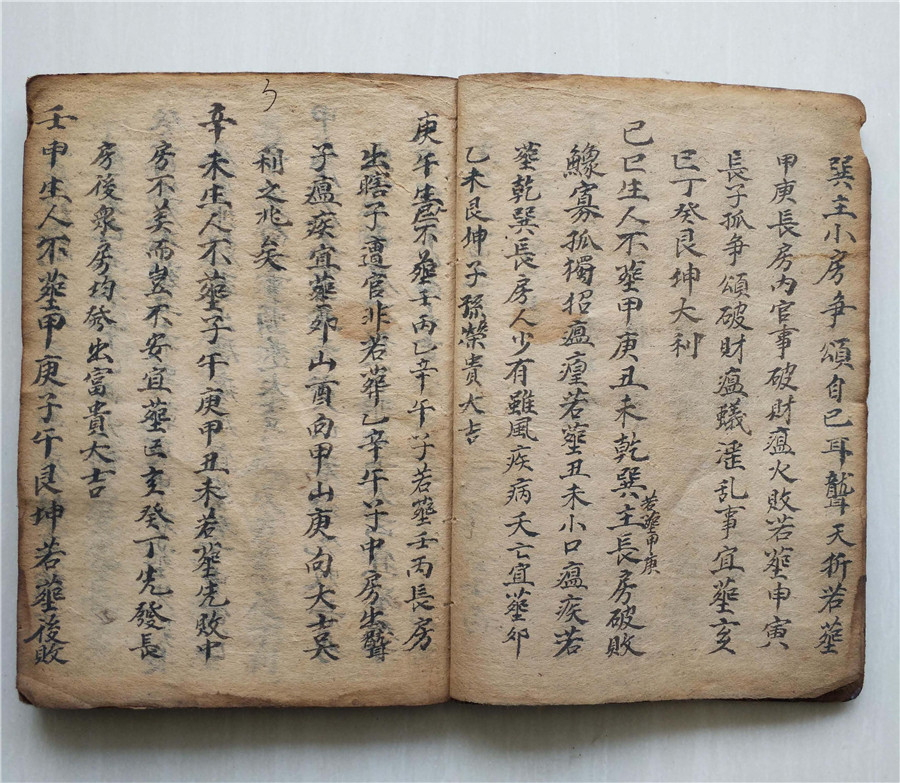 巽主小房爭頌自己耳聾夭折若塟
甲庚長房內官事破財瘟火敗若塟申寅
長子孤爭頌破財瘟蟻淫乱事宜塟亥
巳丁癸艮坤大利
己巳生人不塟甲庚丑未乾巽主長房破敗
若塟甲庚
鰥寡孤獨招瘟瘟若塟丑未小口瘟疾若
塟乾巽長房人少有雖風疾病夭亡宜塟卯
乙未艮坤子孫榮貴大吉
庚午生不塟壬丙乙辛午丁若塟壬丙長房
出瞎子遭官非若葬乙辛午丁中房出聾
子瘟疾宜塟卯山酉向甲山庚向大吉
利之兆矣
辛未生人不塟子午庚甲丑未若塟先敗中
房不美而豈不安宜塟巳亥癸丁先發長
房後衆房均發出富貴大吉
壬申生人不塟甲庚子午艮坤若塟後敗